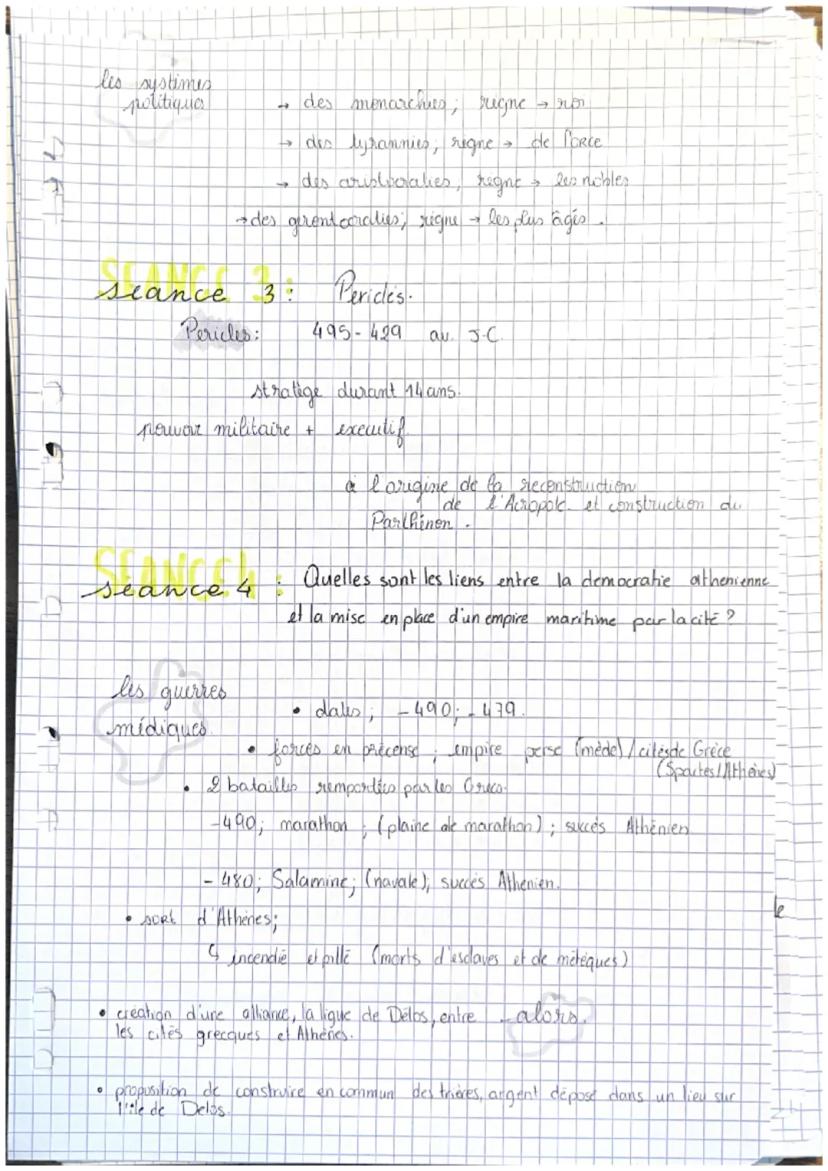 les systimes
politiques
→ des monarchies; règne → roi
→ des tyrannies; règne → de force
→ des aristocraties, règne → les nobles
→ des gerentocraties; règne → les plus âgés.
SEANCE 3
séance 3 : Periclès.
Pericles: 495-429 av. J-C.
stratège durant 14 ans.
pouvoir militaire + executif.
à l'origine de la reconstruction
de l'Acropole et construction du
Parthénon.
SEANCE 4
séance 4 : Quelles sont les liens entre la democratie athenienne
et la mise en place d'un empire maritime par la cité ?
les guerres
médiques
• dates; -490; -479.
• forces en précense; empire perse (mède) / cités de Grèce
(Spartes/Athènes)
• 2 batailles remportées par les Grecs.
-490; marathon; (plaine de marathon); succès Athénien
- 480; Salamine; (navale); succès Athenien.
• sort d'Athènes;
↳ incendié et pillé (morts d'esclaves et de métèques)
• création d'une alliance, la ligue de Délos, entre alors.
les cités grecques et Athènes.
• proposition de construire en commun des trières, argent déposé dans un lieu sur
l'île de Delos.
le